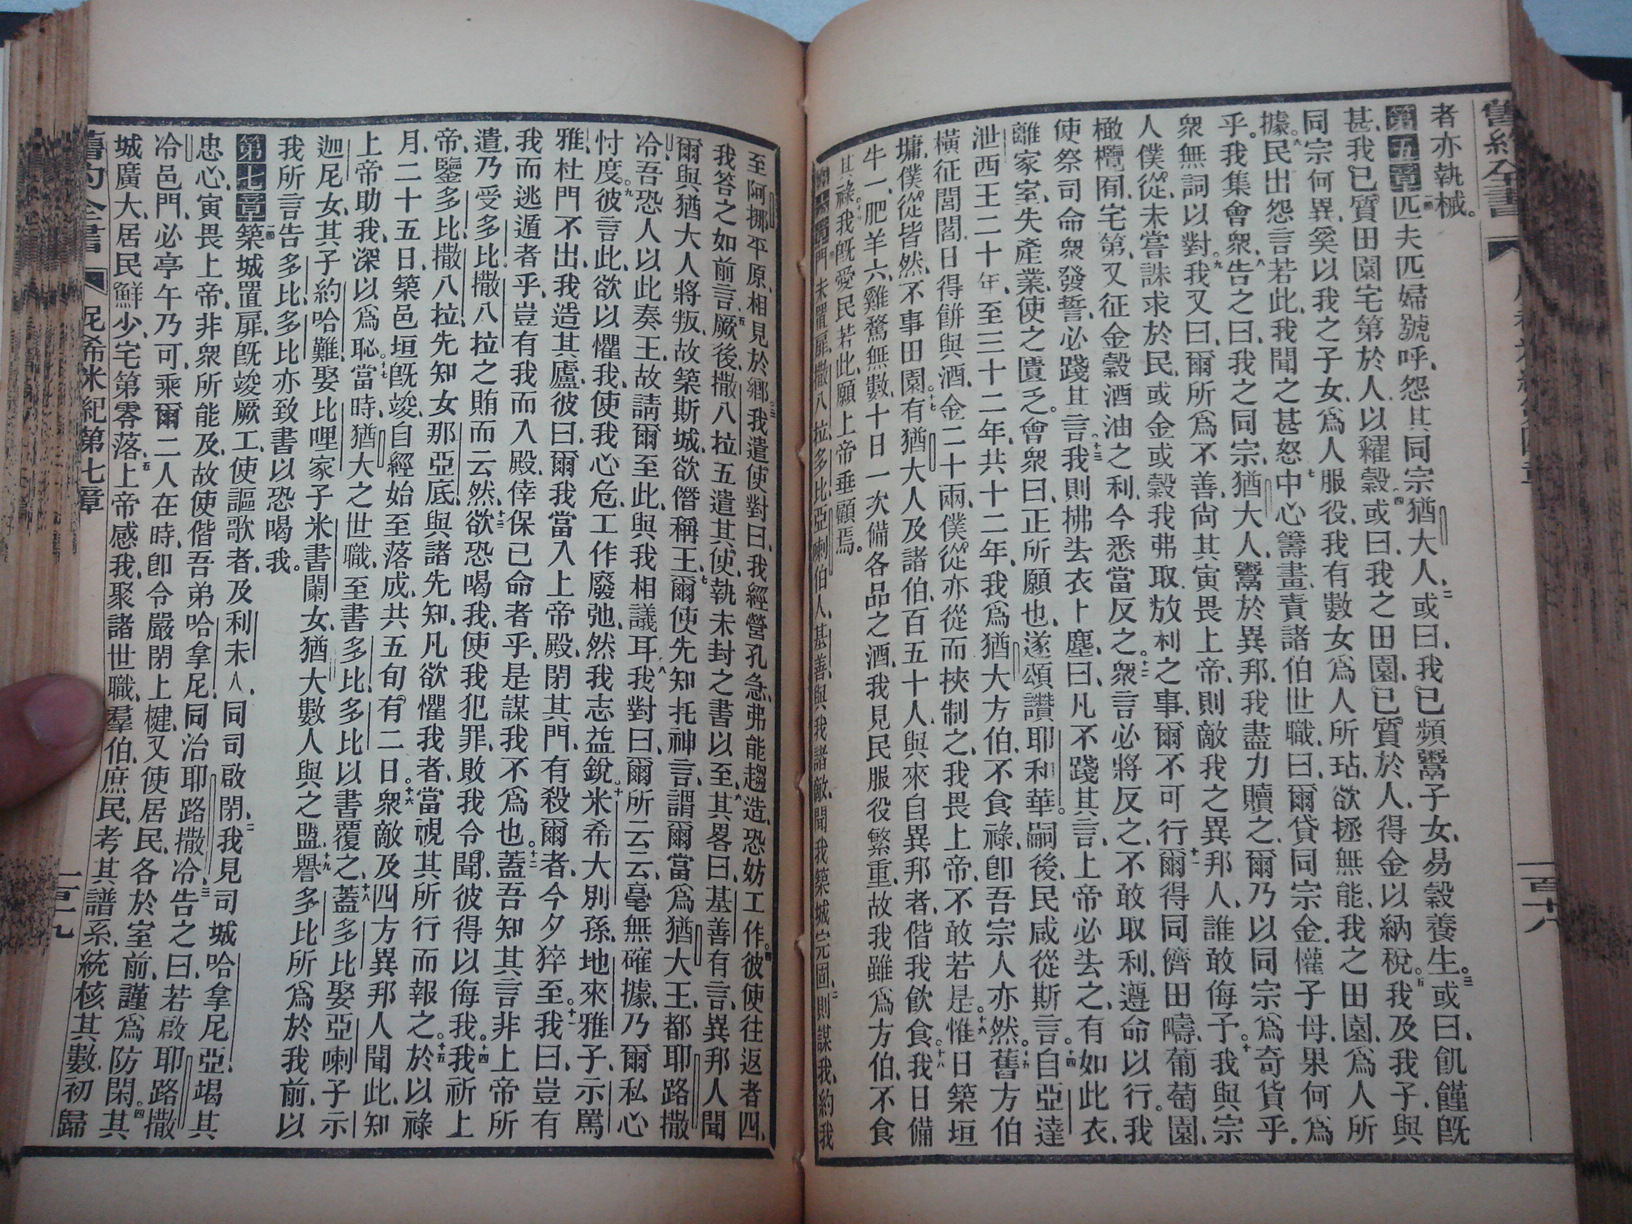 舊約全書
者亦執械。
第五章 匹夫匹婦號呼、怨其同宗猶大人、或曰、我已頻鬻子女、易穀養生。或曰、飢饉旣
甚、我已質田園宅第於人、以糴穀、或曰、我之田園、已質於人、得金以納稅、我及我子、與
同宗何異、奚以我之子女、爲人服役、我有數女、爲人所玷、欲拯無能、我之田園、爲人所
據。民出怨言若此、我聞之甚怒、中心籌畫、責諸伯世職、曰、爾貸同宗金、權子母、果何爲
乎。我集會衆、告之曰、我之同宗猶大人、鬻於異邦、我盡力贖之、爾乃以同宗爲奇貨乎、
衆無詞以對、我又曰、爾所爲不善、尙其寅畏上帝、則敵我之異邦人、誰敢侮予。我與宗
人僕從、未嘗誅求於民、或金或穀、我弗取、放利之事、爾不可行、爾得同儕田疇、葡萄園、
橄欖囿、宅第、又征金穀酒油之利、今悉當反之、衆言必將反之、不敢取利、遵命以行。我
使祭司命衆發誓、必踐其言、我則拂去衣上塵、曰、凡不踐其言、上帝必去之、有如此衣、
離家室、失產業、使之匱乏、會衆曰、正所願也、遂頌讚耶和華、嗣後民咸從斯言。自亞達
泄西王二十年、至三十二年、共十二年、我爲猶大方伯、不食祿、卽吾宗人亦然。舊方伯
橫征閭閻、日得餅與酒、金二十兩、僕從亦從而挾制之、我畏上帝、不敢若是。惟日築垣
墉、僕從皆然、不事田園。有猶大人及諸伯、百五十人、與來自異邦者、偕我飮食、我日備
牛一、肥羊六、雞鶩無數、十日一次備各品之酒、我見民服役繁重、故我雖爲方伯、不食
其祿、我旣愛民若此、願上帝垂顧焉。
門未置扉、撒八拉、多比、亞喇伯人、基善、與我諸敵、聞我築城完固、則謀我、約我
一百十八
至阿挪平原、相見於鄉。我遣使對曰、我經營孔急、弗能趨造、恐妨工作。彼使往返者四、
我答之如前言、厥後撒八拉五遣其使、執未封之書以至、其畧曰、基善有言、異邦人聞
爾與猶大人將叛、故築斯城、欲僭稱王、爾使先知托神言、謂爾當爲猶大王、都耶路撒
冷、吾恐人以此奏王、故請爾至此、與我相議耳、我對曰、爾所云云、毫無確據、乃爾私心
忖度。彼言此、欲以懼我、使我心危、工作廢弛、然我志益銳、米希大別孫、地來雅子、示罵
雅、杜門不出、我造其廬、彼曰、爾我當入上帝殿、閉其門、有殺爾者、今夕猝至。我曰、豈有
我而逃遁者乎、豈有我而入殿、倖保已命者乎、是謀我不爲也。蓋吾知其言非上帝所
遣、乃受多比撒八拉之賄而云然、欲恐喝我、使我犯罪、敗我令聞、彼得以侮我。我祈上
帝、鑒多比撒八拉先知女那亞底、與諸先知、凡欲懼我者、當視其所行而報之。於以祿
月二十五日、築邑垣旣竣、自經始至落成、共五旬有二日、衆敵及四方異邦人聞此、知
上帝助我、深以爲恥、當時、猶大之世職、至書多比、多比以書覆之、蓋多比娶亞喇子示
迦尼女、其子約哈難、娶比哩家子米書闌女、猶大數人與之盟、譽多比所爲於我前、以
我所言告多比、多比亦致書以恐喝我。
第七章 築城置扉、旣竣厥工、使謳歌者、及利未人、同司啟閉、我見司城哈拿尼亞竭其
忠心、寅畏上帝、非衆所能及、故使偕吾弟哈拿尼、同治耶路撒冷、告之曰、若啟耶路撒
冷邑門、必亭午乃可、乘爾二人在時、卽令嚴閉上楗、又使居民、各於室前、謹爲防閑。其
城廣大、居民鮮少、宅第零落、上帝感我、聚諸世職、羣伯、庶民、考其譜系、統核其數、初歸
舊約全書 尼希米紀第七章 一百十九